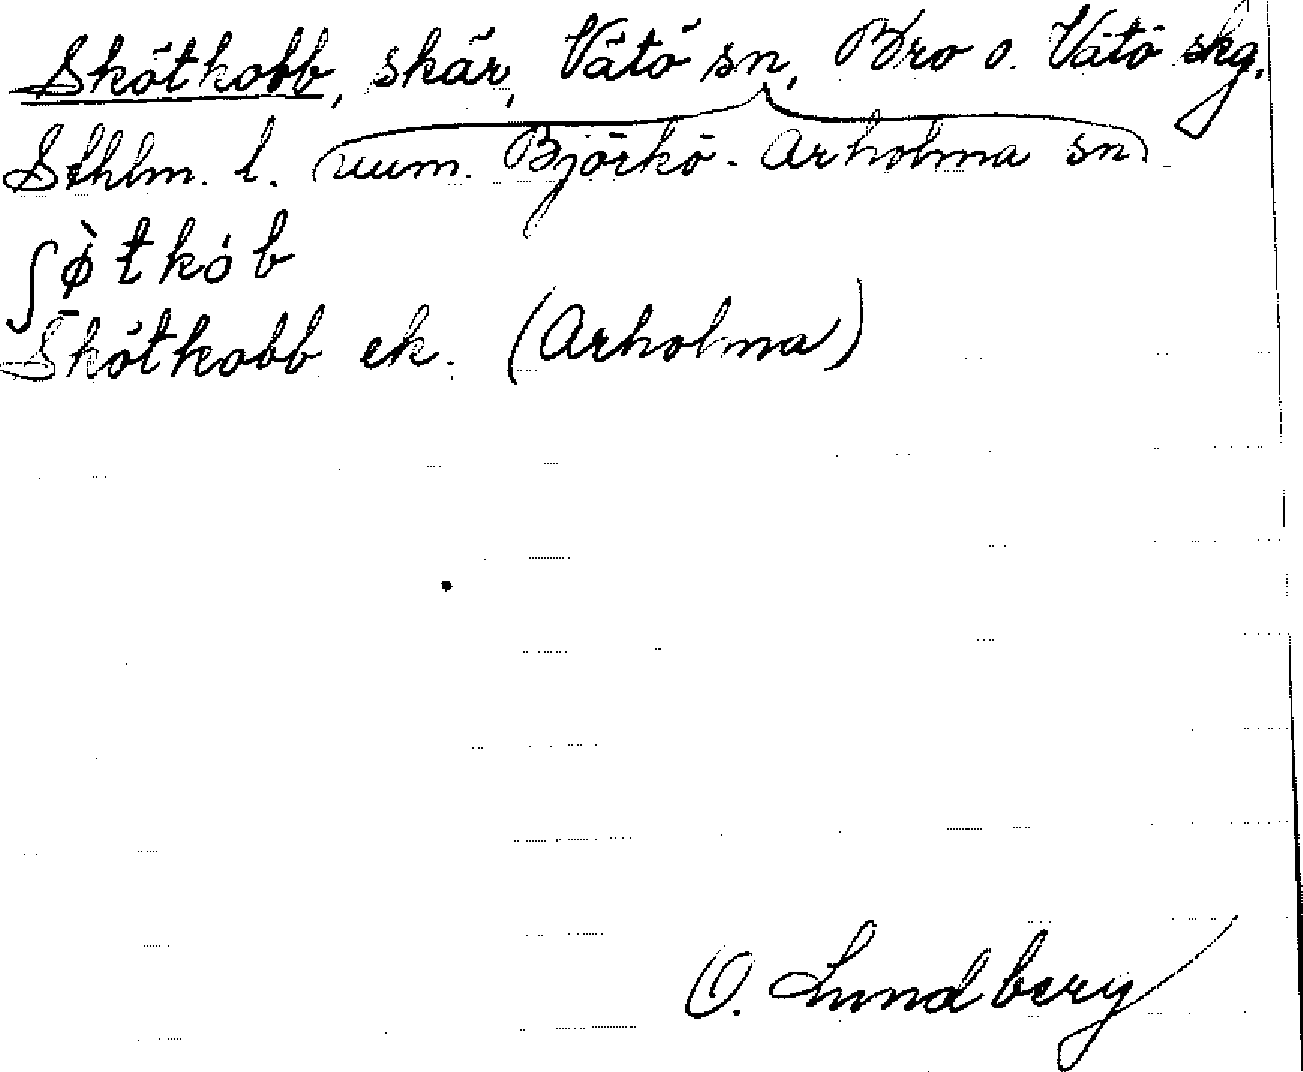 Skötkobb, skär, Vätö sn, Bro o. Vätö skg.
Sthlm. l. (num. Björkö-Arholma sn)
ʃø̀tkób
Skötkobb ek. (Arholma)
O. Lundberg